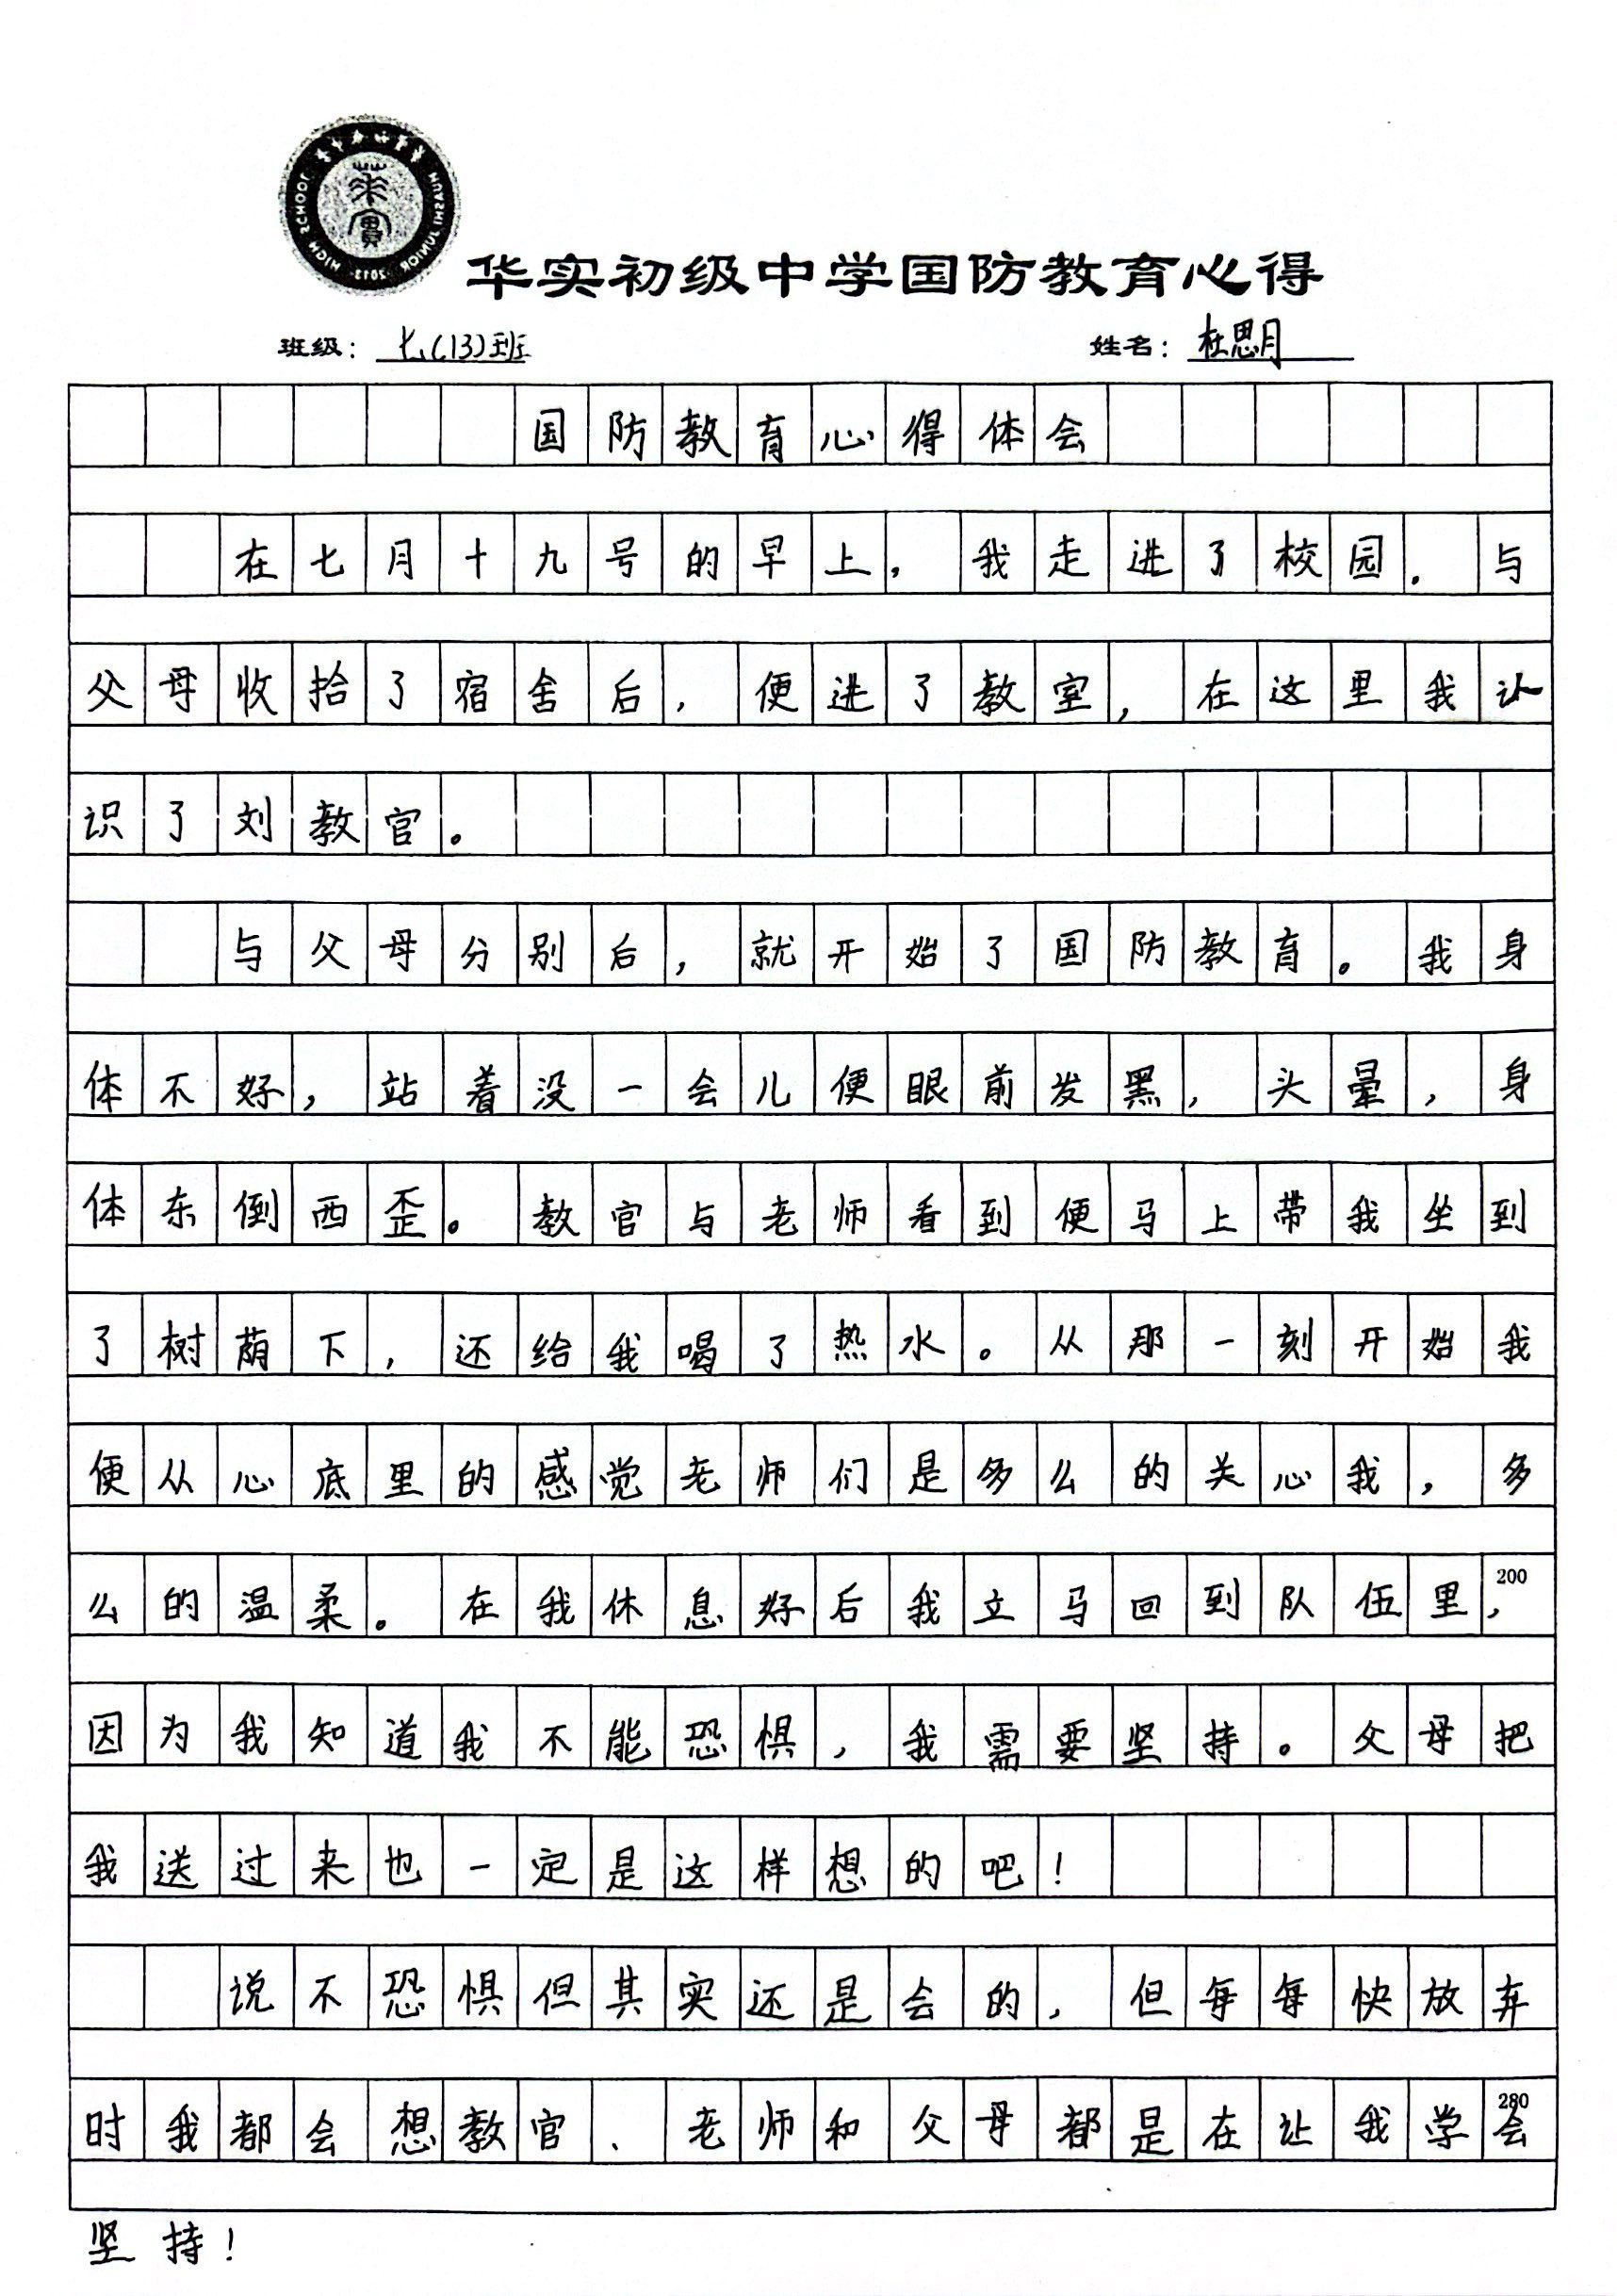 华实初级中学
HUASHI JUNIOR HIGH SCHOOL
·2013·
華實
华实初级中学国防教育心得
班级：七（13）班 姓名：杜思月
国防教育心得体会
在七月十九号的早上，我走进了校园．与
父母收拾了宿舍后，便进了教室，在这里我认
识了刘教官。
与父母分别后，就开始了国防教育。我身
体不好，站着没一会儿便眼前发黑，头晕，身
体东倒西歪。教官与老师看到便马上带我坐到
了树荫下，还给我喝了热水。从那一刻开始我
便从心底里的感觉老师们是多么的关心我，多
么的温柔。在我休息好后我立马回到队伍里，
200
因为我知道我不能恐惧，我需要坚持。父母把
我送过来也一定是这样想的吧！
说不恐惧但其实还是会的，但每每快放弃
时我都会想教官、老师和父母都是在让我学会
280
坚持！